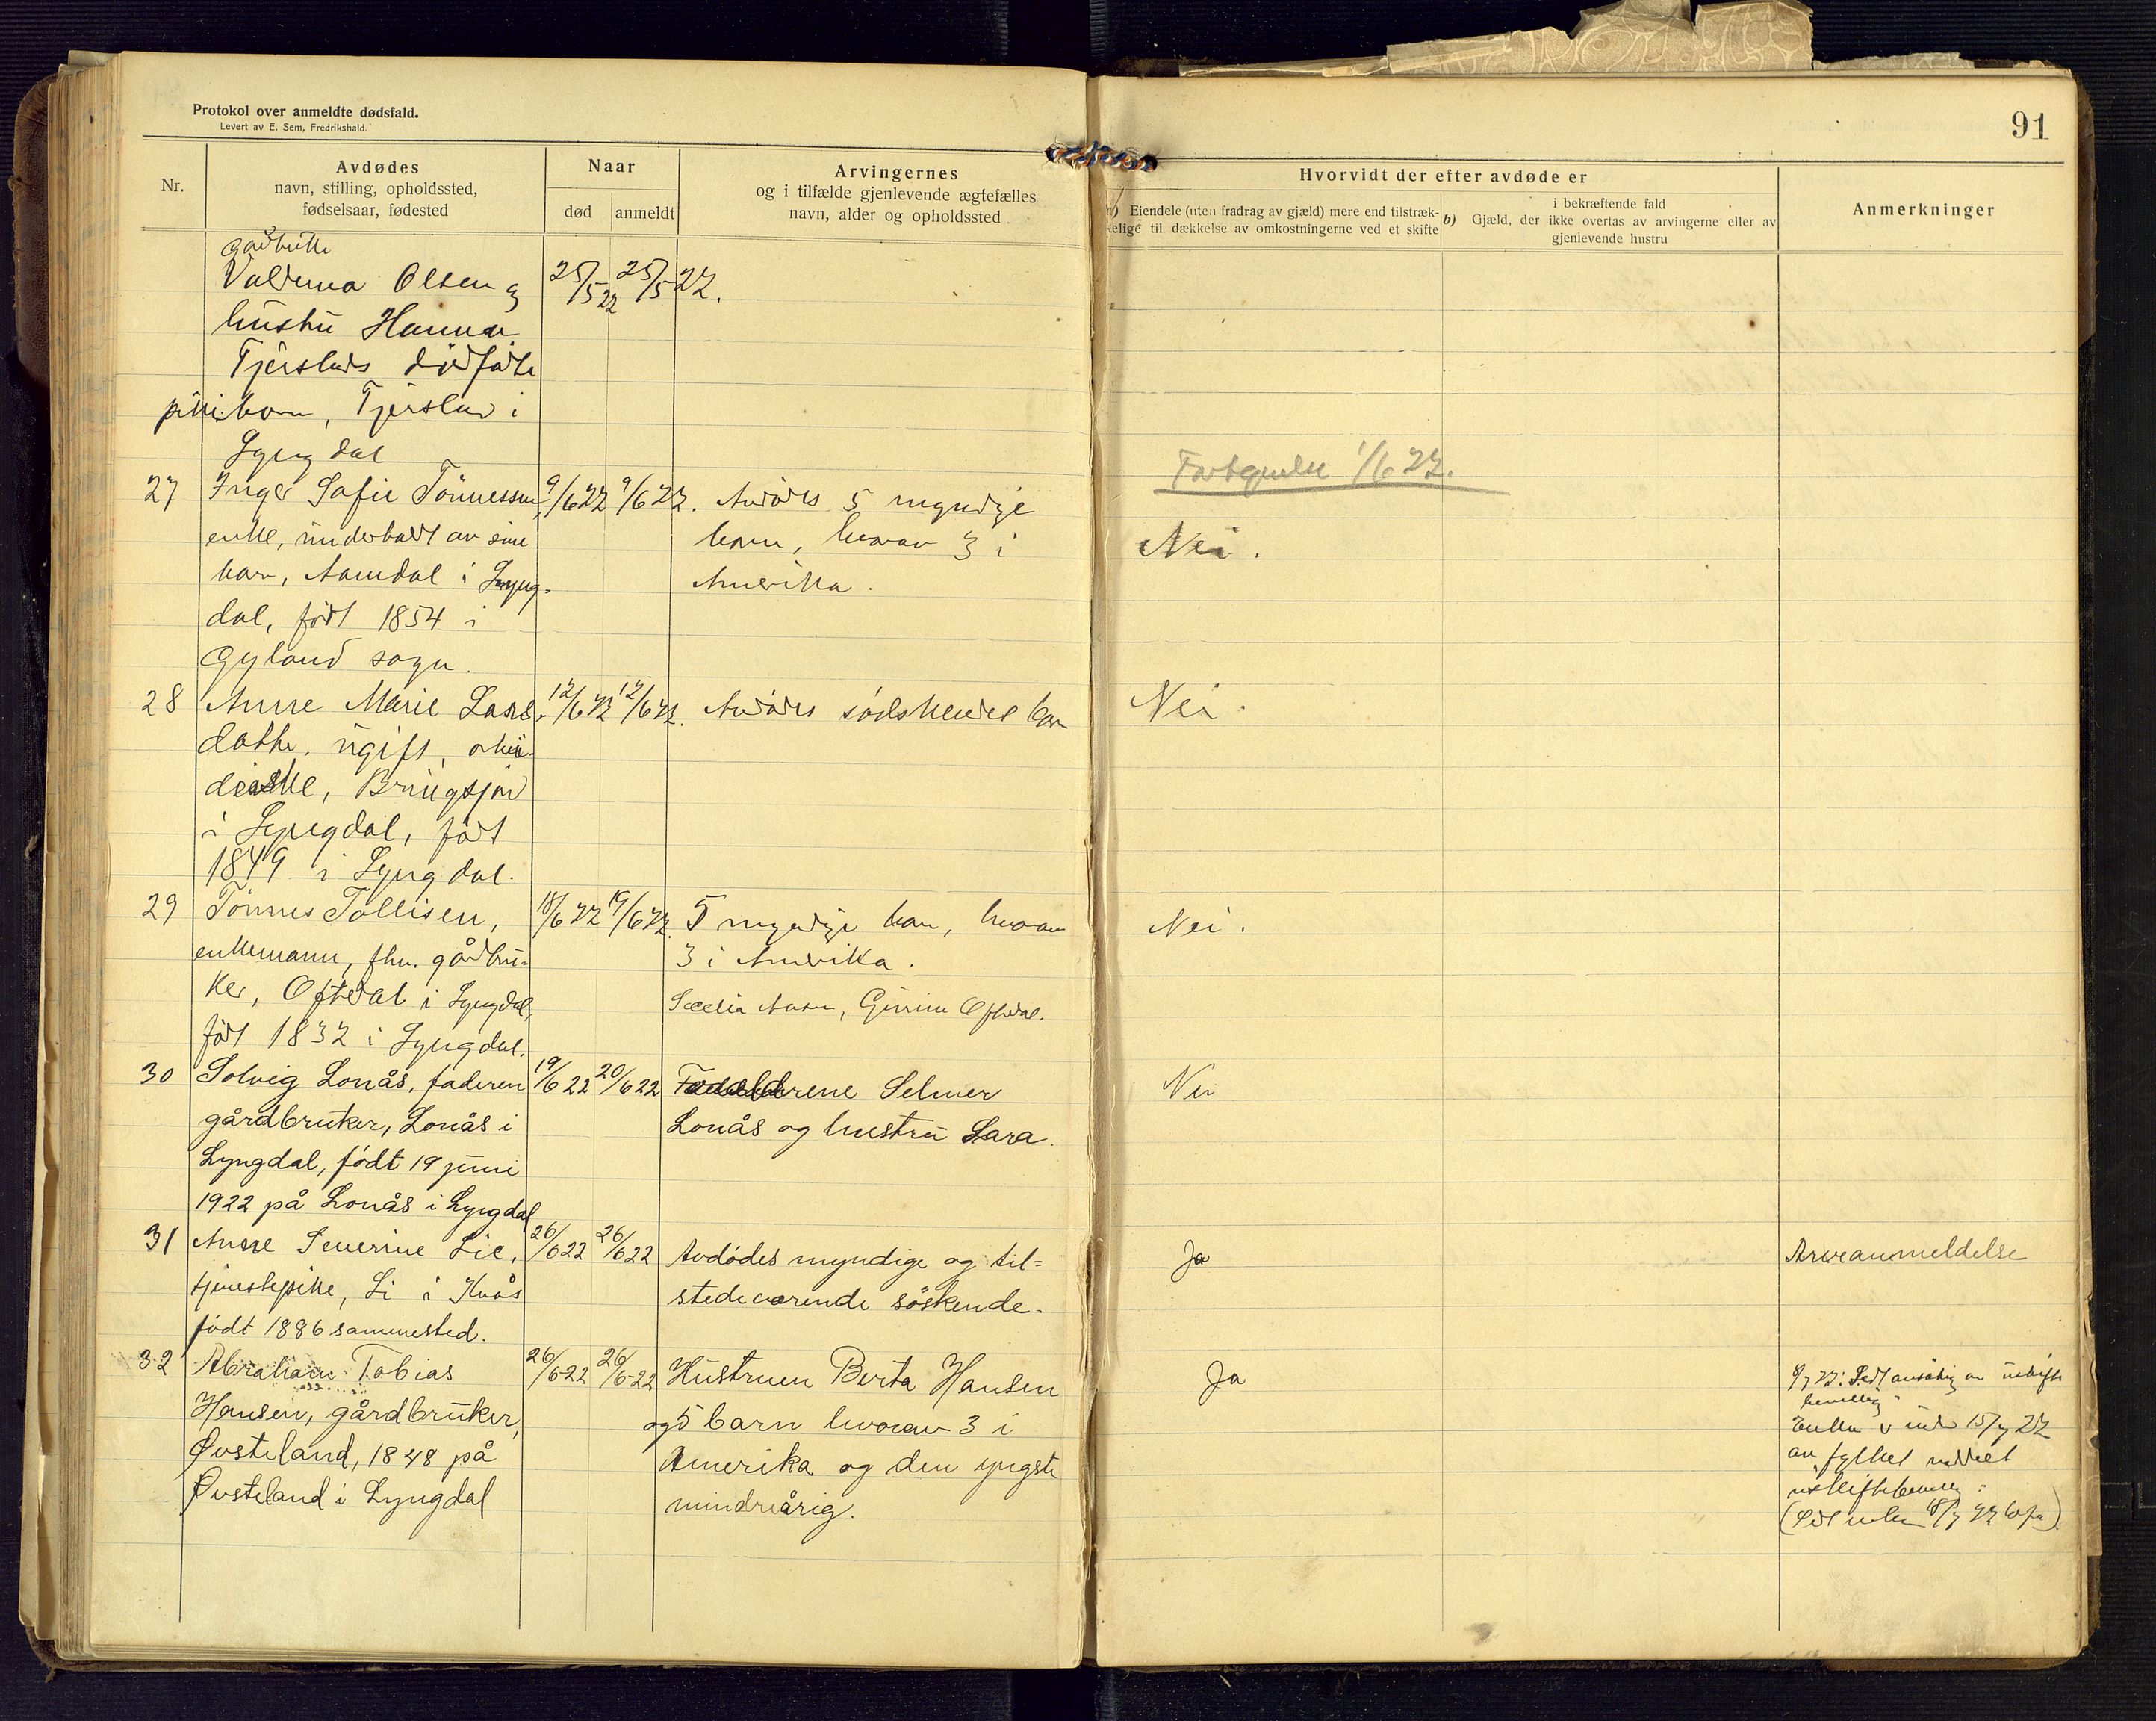 Protokol over anmeldte dødsfald.
Levert av E. Sem, Fredrikshald.
91
Nr.
Avdødes
navn, stilling, opholdssted,
fødselsaar, fødested
Naar
død
anmeldt
Arvingernes
og i tilfælde gjenlevende ægtefælles
navn, alder og opholdssted
Hvorvidt der efter avdøde er
Eiendele (uten fradrag av gjæld) mere end tilstræk-
kelige til dækkelse av omkostningerne ved et skifte
i bekræftende fald
b) Gjæld, der ikke overtas av arvingerne eller av
gjenlevende hustru
Anmerkninger
Olsen og
hustru Hanna
dødfødte
pikebarn, i
Lyngdal
25/5 22
25/5 22.
1/6 22.
27
Inger Sofie Tönnessen,
enke, underholdt av sine
barn, Aamdal i Lyng-
dal, født 1854 i
Gyland sogn.
9/6 22
9/6 22.
Avdødes 5 myndige
barn, hvorav 3 i
Amerika.
Nei.
28
Anne Marie Lars-
datter, ugift, arbei-
derske, Bringsjor
i Lyngdal, født
1849 i Lyngdal.
12/6 22
12/6 22.
Avdødes sødskendes barn
Nei.
29
Tönnes Tollisen,
enkemann, fhv. gårdbru-
ker, Oftedal i Lyngdal,
født 1832 i Lyngdal.
18/6 22
19/6 22.
5 myndige barn, hvorav
3 i Amerika.
Oftedal.
Nei.
30
Solveig Lonås, faderen
gårdbruker, Lonås i
Lyngdal, født 19 juni
1922 på Lonås i Lyngdal
19/6 22
20/6 22
Forældrene Selmer
Lonås og hustru Sara.
Nei
31
Anne Severine Lie,
tjenestepike, Li i Kvås
født 1886 sammested.
26/6 22
26/6 22
Avdødes myndige og til-
stedeværende söskende.
Ja
Arveanmeldelse
32
Abraham Tobias
Hansen, gårdbruker,
Øvsteland, 1848 på
Øvsteland i Lyngdal
26/6 22
26/6 22
Hustruen Berta Hansen
og 5 barn hvorav 3 i
Amerika og den yngste
mindreårig.
Ja
Enken 15/7 22
av fylket meddelt